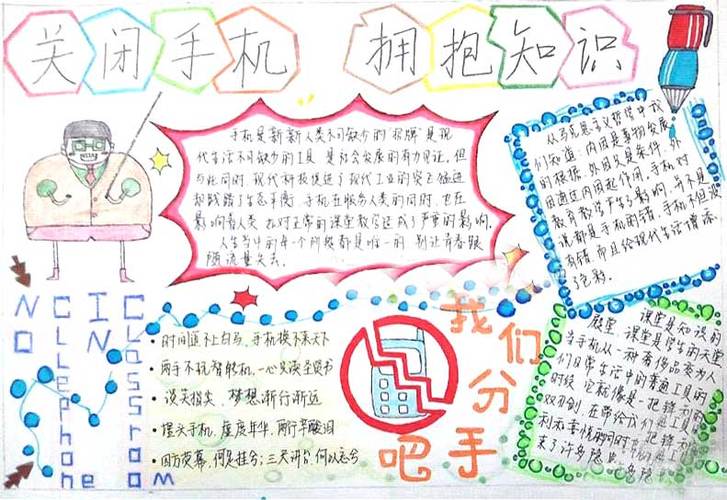 关闭手机 拥抱知识
手机是新新人类不可缺少的招牌是现
代生活不可缺少的工具,是社会发展的有力见证。但
与此同时,现代科技促进了现代工业的突飞猛进
却践踏了生态平衡,手机在服务人类的同时,也在
影响着人类,也对正常的课堂教学造成了严重的影响。
人生当中的每一个阶段都是唯一的,别让青春跟
随流量失去。
从马克思主义哲学中我
们知道,内因是事物发展
的根据,外因只是条件,外
因通过内因起作用,手机对
教育教学产生了影响,并不是
说都是手机的错,手机不但没
有错,而且给现代生活增添
了色彩。
NO Cllephone IN Classroom
时间追不上白马,手机换不来天下
两手不玩智能机,一心只读圣贤书
谈笑指尖,梦想渐行渐远
埋头手机,虚度年华,两行辛酸泪
四方荧幕,何足挂齿;三尺讲台,何以忘兮
我们分手吧
课堂是知识的
殿堂,课堂是学生的天堂
当手机从一种奢侈品变为人
们日常生活中的普通工具的
时候,它就像是一把锋利的
双刃剑,在带给我们
利和喜悦的同时
来了许多隐患